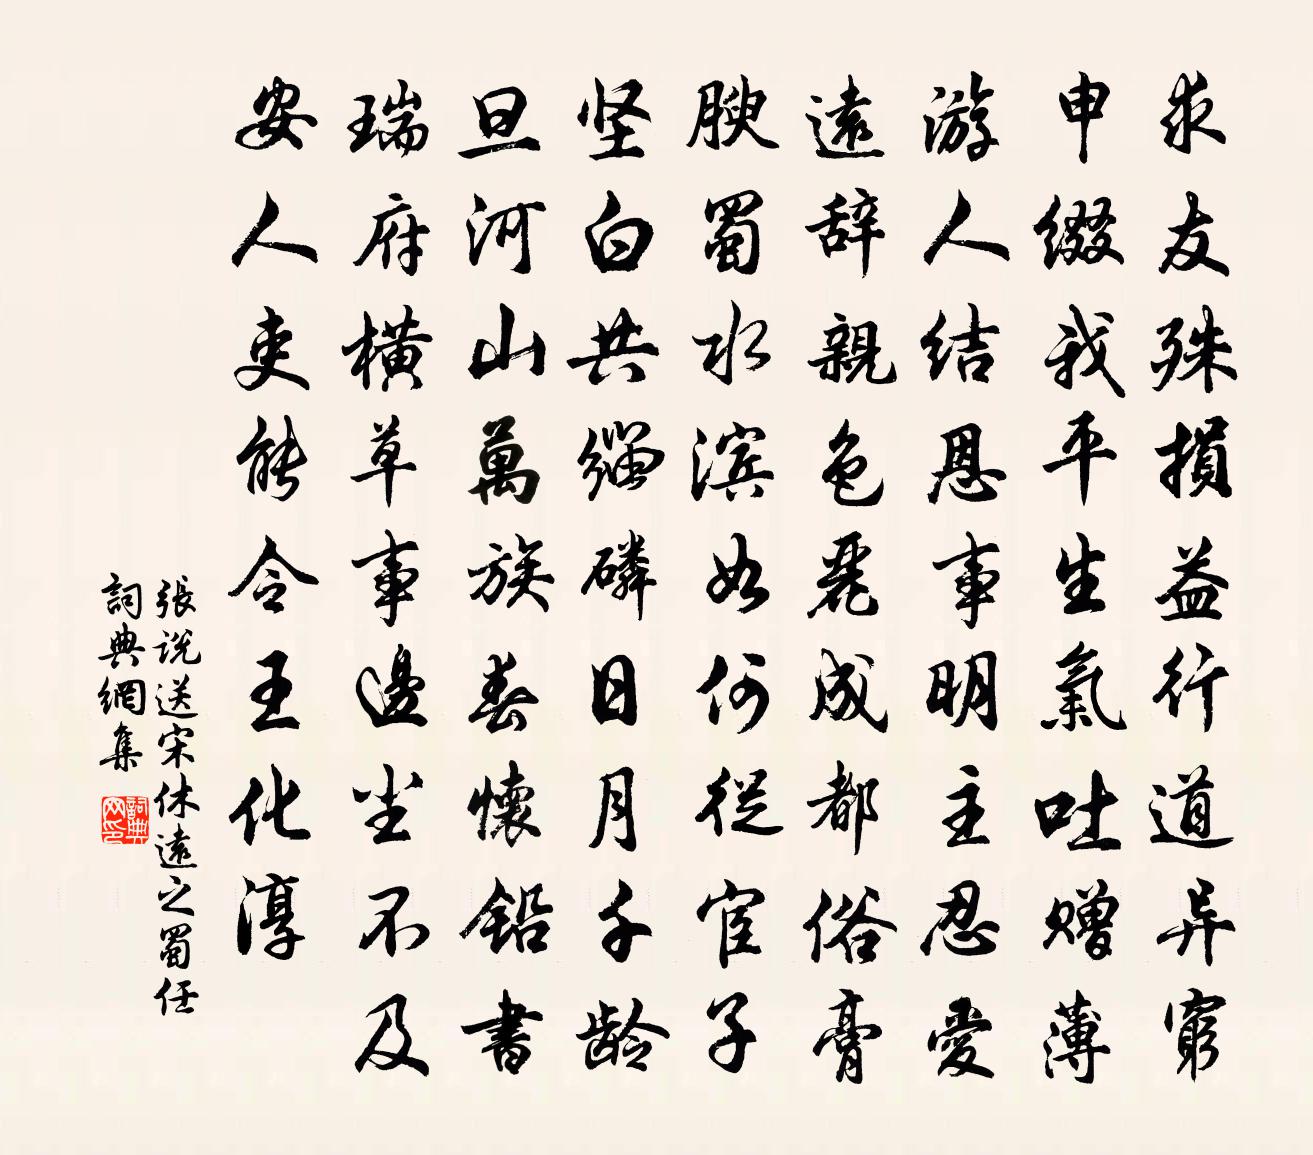 求友殊損益行道异窮
申綴我平生氣吐贈薄
游人結恩事明主忍愛
遠辞親色麗成都俗膏
腴蜀水滨如何從宦子
坚白共緇磷日月千龄
旦河山萬族春懷鉛書
瑞府横草事邊尘不及
安人吏能令王化淳
張说送宋休遠之蜀任
詞典網集
詞典网印